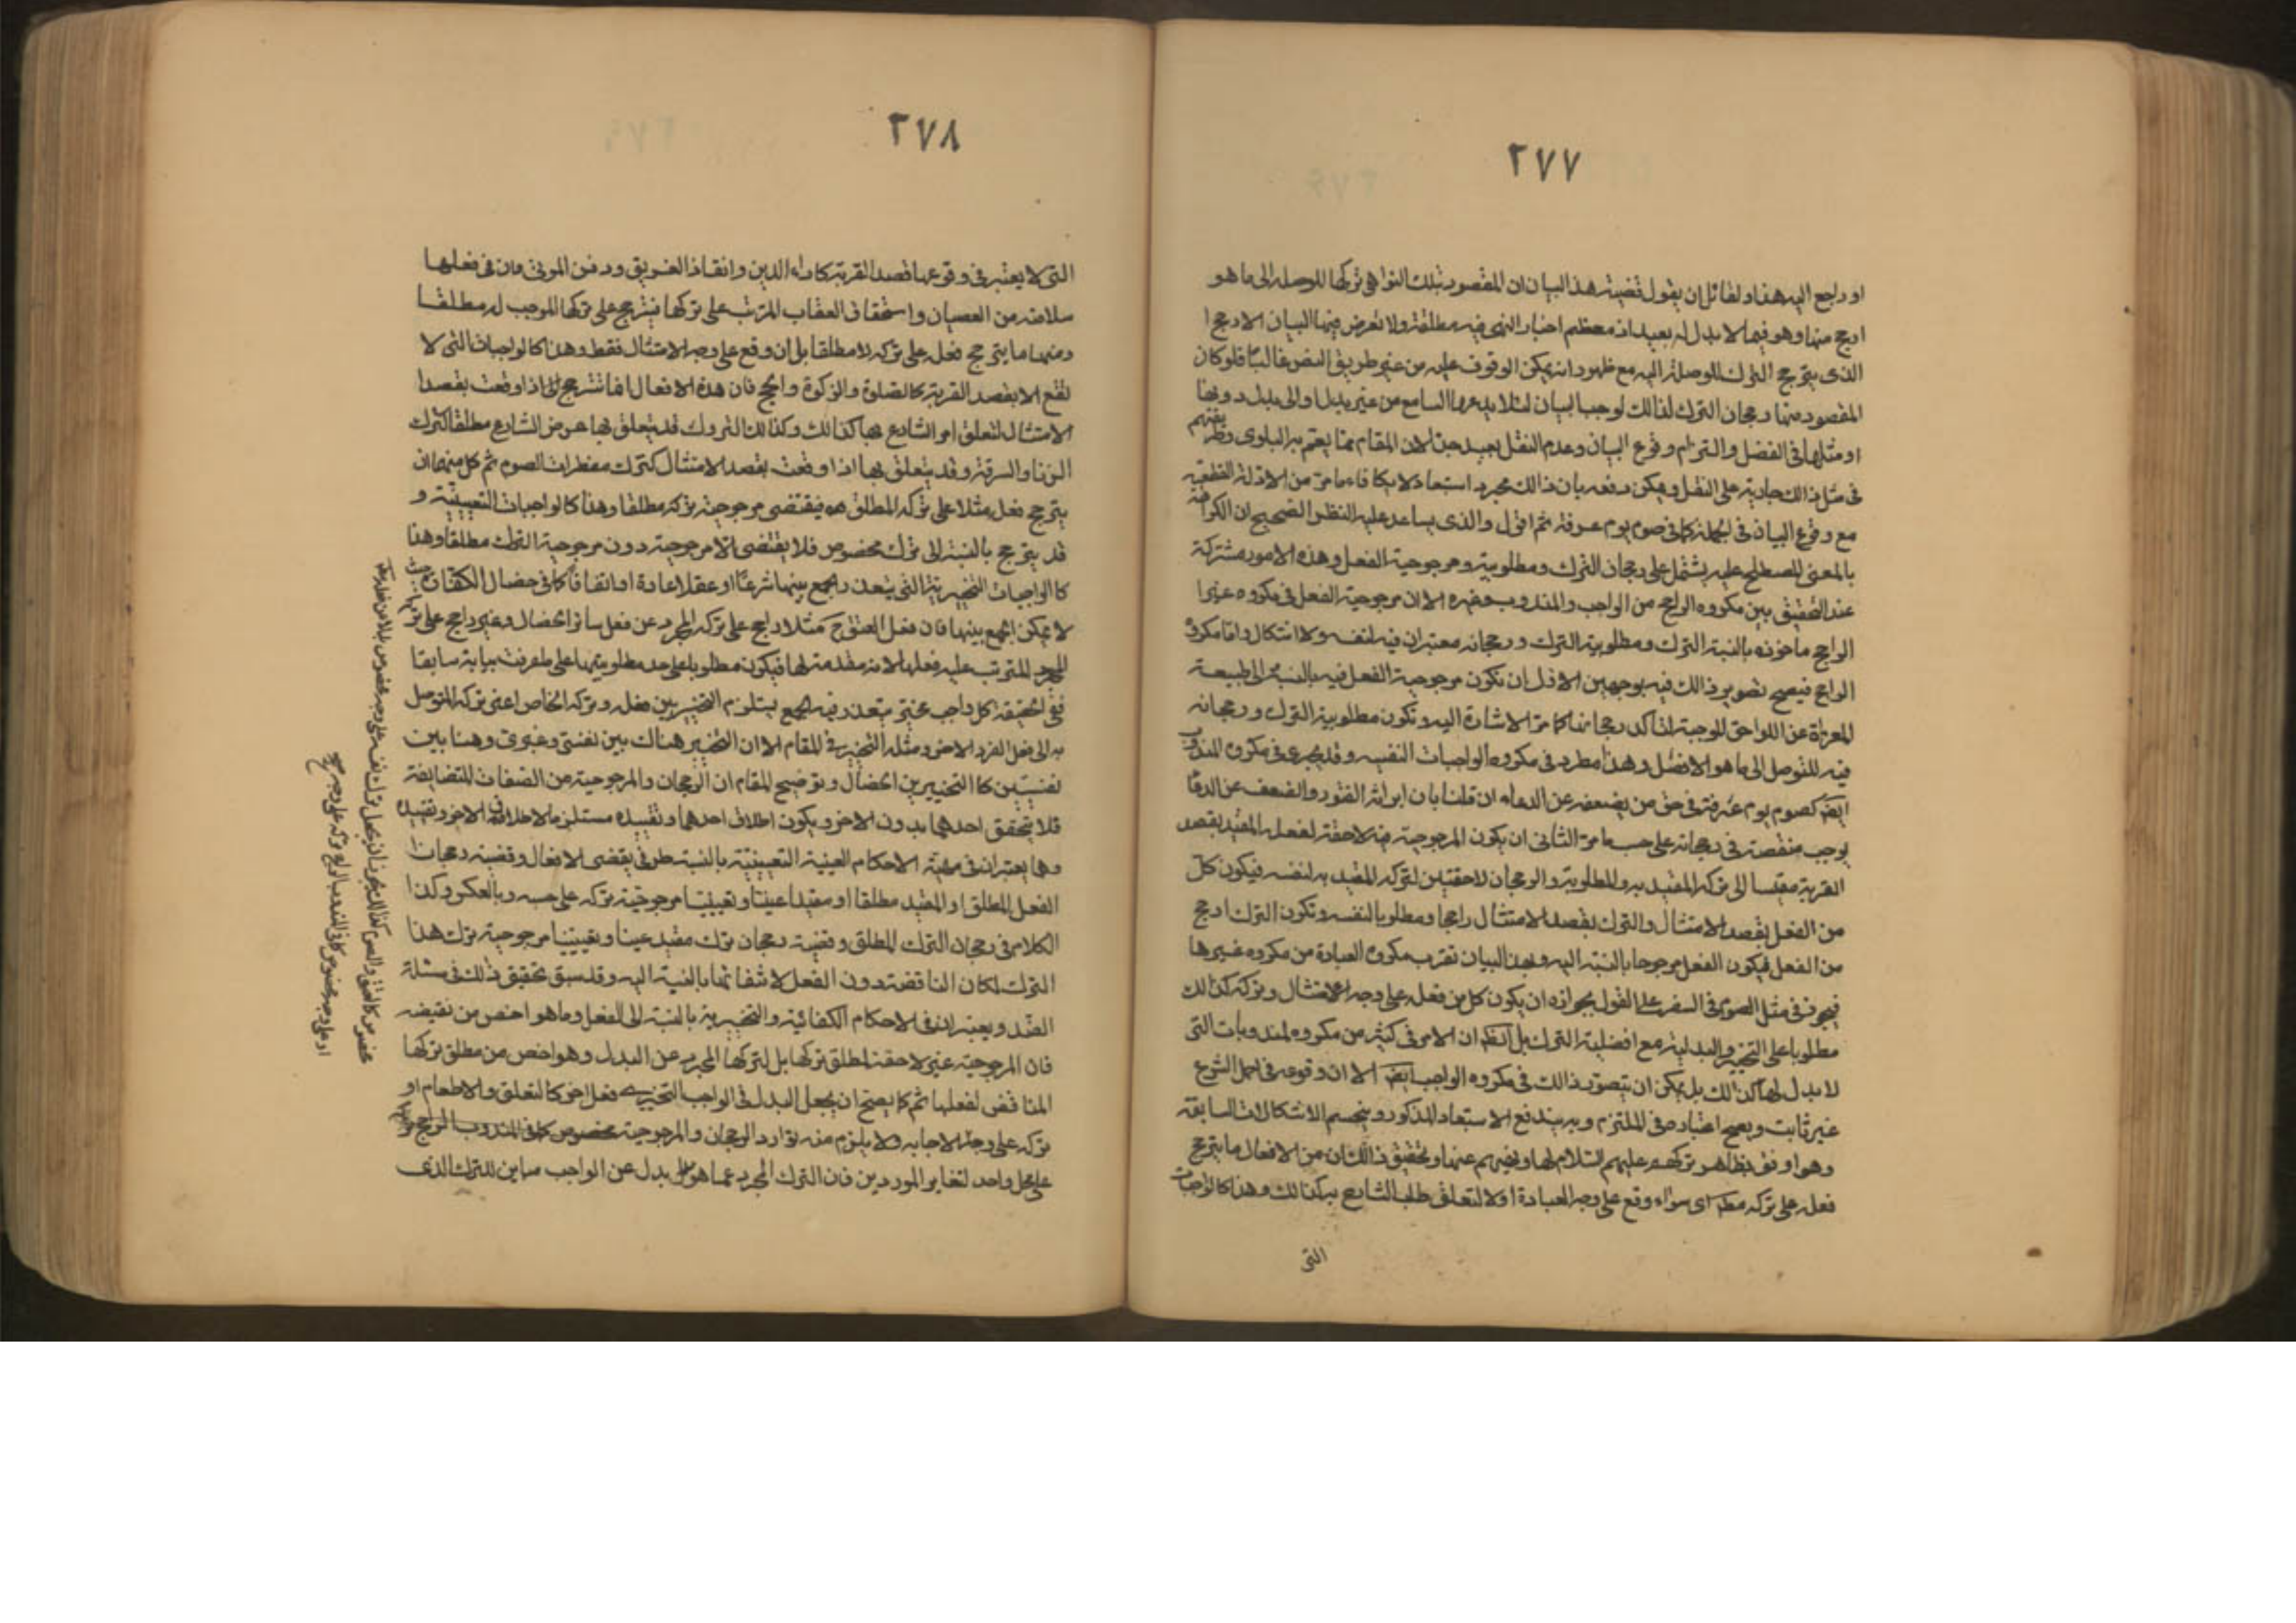 ٢٧٧
او راجع اليه هذا ولقائل ان يقول قضية هذا البيان ان المقصود بتلك النواهى تركها للوصلة الى ما هو
ارجح منها وهو فيما لا بدل له بعيد اذ معظم اخبار النهى فيه مطلقة ولا تعرض فيها لبيان الارجح
الذى يترجح الترك للوصلة اليه مع ظهور انه لا يمكن الوقوف عليه من غير طريق النص غالبا فلو كان
المقصود منها رجحان الترك لذلك لوجب البيان لئلا يدعها السامع من غير بدل او الى بدل دونها
او مثلها فى الفضل والتزام وقوع البيان وعدم النقل بعيد جدا لان المقام مما يعم به البلوى وطريقتهم
فى مثل ذلك جارية على النقل ويمكن دفعه بان ذلك مجرد استبعاد لا يكافئ ما مر من الادلة القطعية
مع وقوع البيان فى الجملة كما فى صوم يوم عرفة ثم اقول والذى يساعد عليه النظر الصحيح ان الكراهة
بالمعنى المصطلح عليه يشتمل على رجحان الترك ومطلوبيته ومرجوحية الفعل وهذه الامور مشتركة
عند التحقيق بين مكروه الراجح من الواجب والمندوب وغيره الا ان مرجوحية الفعل فى مكروه غير
الراجح ماخوذة بالنسبة الى الترك ومطلوبية الترك ورجحانه معتبران فيه لنفسه ولا اشكال واما مكروه
الراجح فيصح تصوير ذلك فيه بوجهين الاول ان تكون مرجوحية الفعل فيه بالنسبة الى الطبيعة
المعراة عن اللواحق الموجبة لتاكد رجحانها كما مر الاشارة اليه وتكون مطلوبية الترك ورجحانه
فيه للتوصل الى ما هو الافضل وهذا مطرد فى مكروه الواجبات النفسية وقد يجرى فى مكروه المندوب
ايضا كصوم يوم عرفة فى حق من يضعفه عن الدعاء ان قلنا بان ايراثه الفتور والضعف عن الدعاء
يوجب منقصة فى رجحانه على حسب ما مر الثانى ان يكون المرجوحية فيه لاحقة لفعله المقيد بقصد
القربة مقيسا الى تركه المقيد به والمطلوبية والرجحان لاحقتين لتركه المقيد به لنفسه فيكون كل
من الفعل بقصد الامتثال والترك بقصد الامتثال راجحا ومطلوبا لنفسه وتكون الترك ارجح
من الفعل فيكون الفعل مرجوحا بالنسبة اليه وبهذا البيان نقرب مكروه العبادة من مكروه غيرها
فيجوز فى مثل الصوم فى السفر على القول بجوازه ان يكون كل من فعله على وجه الامتثال وتركه كذلك
مطلوبا على التخيير والبدلية مع افضلية الترك بل الظ ان الامر فى كثير من مكروه المندوبات التى
لا بدل لها كذلك بل يمكن ان يتصور ذلك فى مكروه الواجب ايضا الا ان وقوعه فى اصل الشرع
غير ثابت ويصح اعتباره فى الملتزم وبه يندفع الاستبعاد المذكور وينحسم الاشكالات السابقة
وهو اوفق بظاهر تركهم عليهم السلام لها ونهيهم عنها وتحقيق ذلك ان من الافعال ما يترجح
فعله على تركه مط اى سواء وقع على وجه العبادة او لا لتعلق طلب الشارع به كذلك وهذا كالواجبات
التى
٢٧٨
التى لا يعتبر فى وقوعها قصد القربة كاداء الدين وانقاذ الغريق ودفن الموتى فان فى فعلها
سلامة من العصيان واستحقاق العقاب المترتب على تركها فيترجح على تركها الموجب له مطلقا
ومنها ما يترجح فعله على تركه لا مطلقا بل ان وقع على وجه الامتثال فقط وهذا كالواجبات التى لا
تقع الا بقصد القربة كالصلوة والزكوة والحج فان هذه الافعال انما تترجح اذا وقعت بقصد
الامتثال لتعلق امر الشارع بها كذلك وكذلك التروك قد يتعلق بها غرض الشارع مطلقا كترك
الزنا والسرقة وقد يتعلق بها اذا وقعت بقصد الامتثال كترك مفطرات الصوم ثم كل منهما ان
يترجح فعله مثلا على تركه المطلق فيقتضى مرجوحية تركه مطلقا وهذا كالواجبات التعيينية و
قد يترجح بالنسبة الى ترك مخصوص فلا يقتضى الا مرجوحيته دون مرجوحية الترك مطلقا وهذا
كالواجبات التخييرية التى يتعذر الجمع بينها شرعا او عقلا او عادة او اتفاقا كما فى خصال الكفارة حيث
لا يمكن الجمع بينها فان فعل العتق ح مثلا راجح على تركه المجرد عن فعل سائر الخصال وغير راجح على تركه
المجرد المترتب عليه فعلها لانه مقدمة لها فيكون مطلوبا على حد مطلوبيتها على ما عرفت بيانه سابقا
ففى الحقيقة كل واجب تخييرى يتعذر فيه الجمع يستلزم التخيير بين فعله وتركه الخاص اعنى تركه المتوصل
به الى فعل الفرد الاخر ومثله التخيير فى المقام الا ان التخيير هناك بين نفسى وغيرى وهنا بين
نفسيين كالتخيير بين الخصال وتوضيح المقام ان الرجحان والمرجوحية من الصفات المتضايفة
فلا يتحقق احدهما بدون الاخر ويكون اطلاق احدهما وتقييده مستلزما لاطلاق الاخر وتقييده
وهما يعتبران فى الاحكام العينية التعيينية بالنسبة الى طرفى نقيضى الافعال وقضية رجحان
الفعل المطلق او المقيد مطلقا او مقيدا عينا وتعيينا مرجوحية تركه على حسبه وبالعكس وكذا
الكلام فى رجحان الترك المطلق وقضية رجحان ترك مقيد عينا وتعيينا مرجوحية ترك هذا
الترك لمكان المناقضة دون الفعل لانتفائها بالنسبة اليه وقد سبق تحقيق ذلك فى مسئلة
الضد ويعتبران فى الاحكام الكفائية والتخييرية بالنسبة الى الفعل وما هو اخص من نقيضه
فان المرجوحية غير لاحقة لمطلق تركها بل لتركها المجرد عن البدل وهو اخص من مطلق تركها
المناقض لفعلها ثم كما يصح ان يجعل البدل فى الواجب التخييرى فعل اخر كالعتق والاطعام او
تركه على وجه الاجابة ولا يلزم منه توارد الرجحان والمرجوحية
على محل واحد لتغاير الموردين فان الترك المجرد عما هو بدل عن الواجب مباين للترك الذى
مخصوص كالعتق والصوم كذلك يجوز ان يجعل ترك نفسه على وجه مخصوص بدلا من فعله
او على وجه مخصوص كما فى المندوب الراجح تركه على وجه